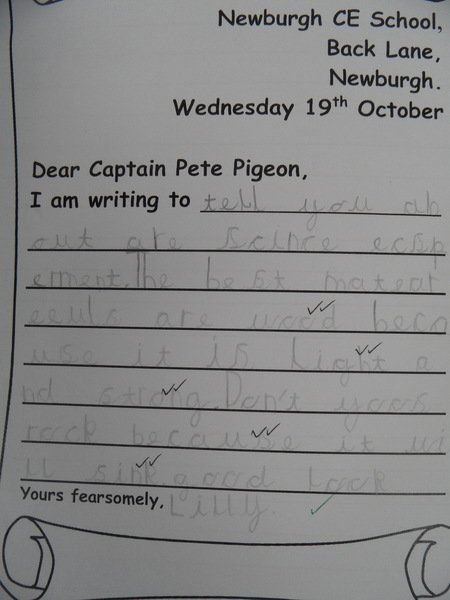 Newburgh CE School,
Back Lane,
Newburgh.
Wednesday 19th October
Dear Captain Pete Pigeon,
I am writing to tell you ab
out are scince ecsp
erement. The best matear
eeuls are wood beca
use it is light a
nd strong. Don't yoos
rock because it wi
ll sink. good look
Yours fearsomely,
Lilly.